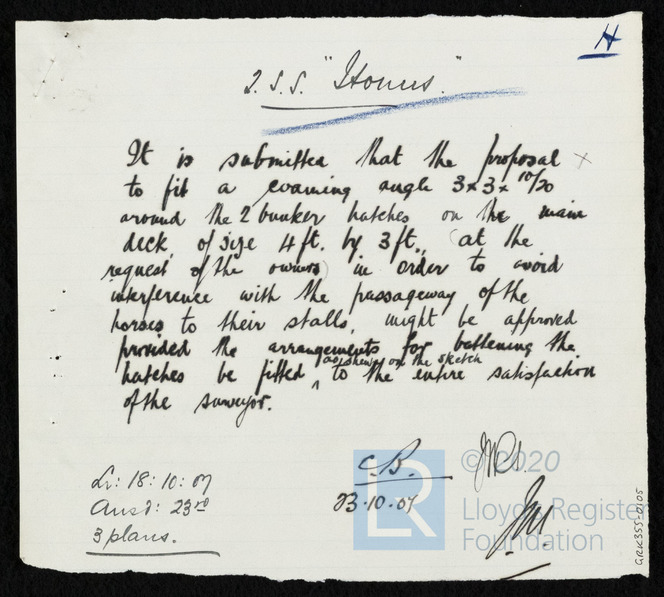 H
T.S.S. "Itonus."
It is submitted that the proposal ×
to fit a coaming angle 3×3×10/20
around the 2 bunker hatches on the main
deck, of size 4ft. by 3ft., (at the
request of the owners) in order to avoid
interference with the passageway of the
horses to their stalls, might be approved
provided the arrangements for battening the
as shewn on the sketch
hatches be fitted ^ to the entire satisfaction
of the surveyor.
C.B.
23·10·07
Lr: 18:10:07
Ansd: 23rd
3 plans.
© 2020
LR
Lloyd's Register
Foundation
GRK355-0105